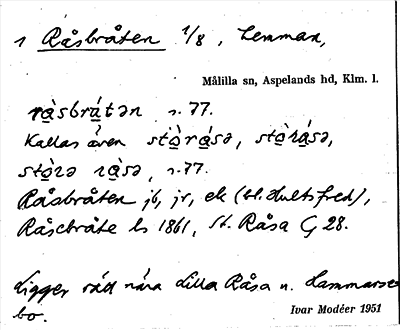 1 Råsbråten 1/8, Lemman,
Målilla sn, Aspelands hd, Klm. l.
rå̀sbrǻtən s. 77.
Kallas även stò̱rǻsə, stò̱rǻsə,
stò̱rə rå̀sə, s. 77.
Råsbråten jb, jr, ek (bl. Hultsfred),
Råsebråte ls 1861, St. Råsa G 28.
Ligger rätt nära Lilla Råsa u. Lammarse-
bo.
Ivar Modéer 1951